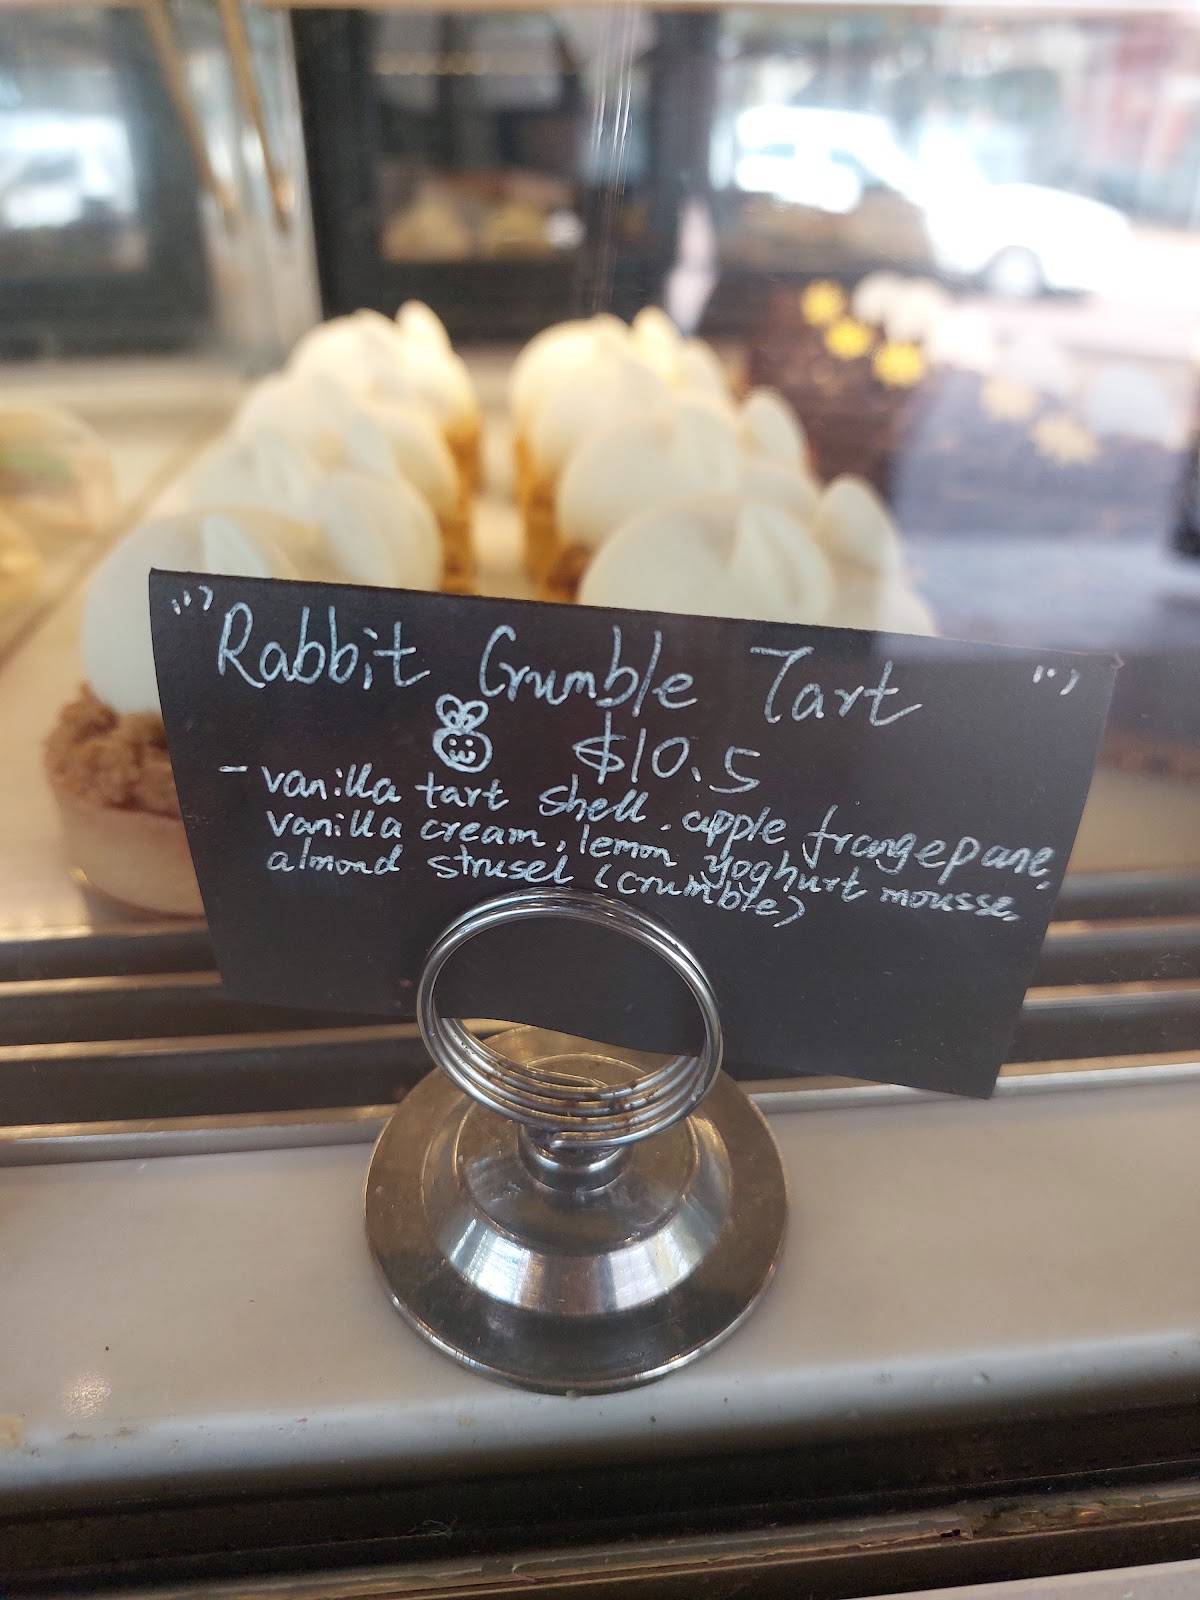 Rabbit Crumble Tart
$10.5
- vanilla tart shell, apple frangepane,
vanilla cream, lemon yoghurt mousse,
almond strusel (crumble)